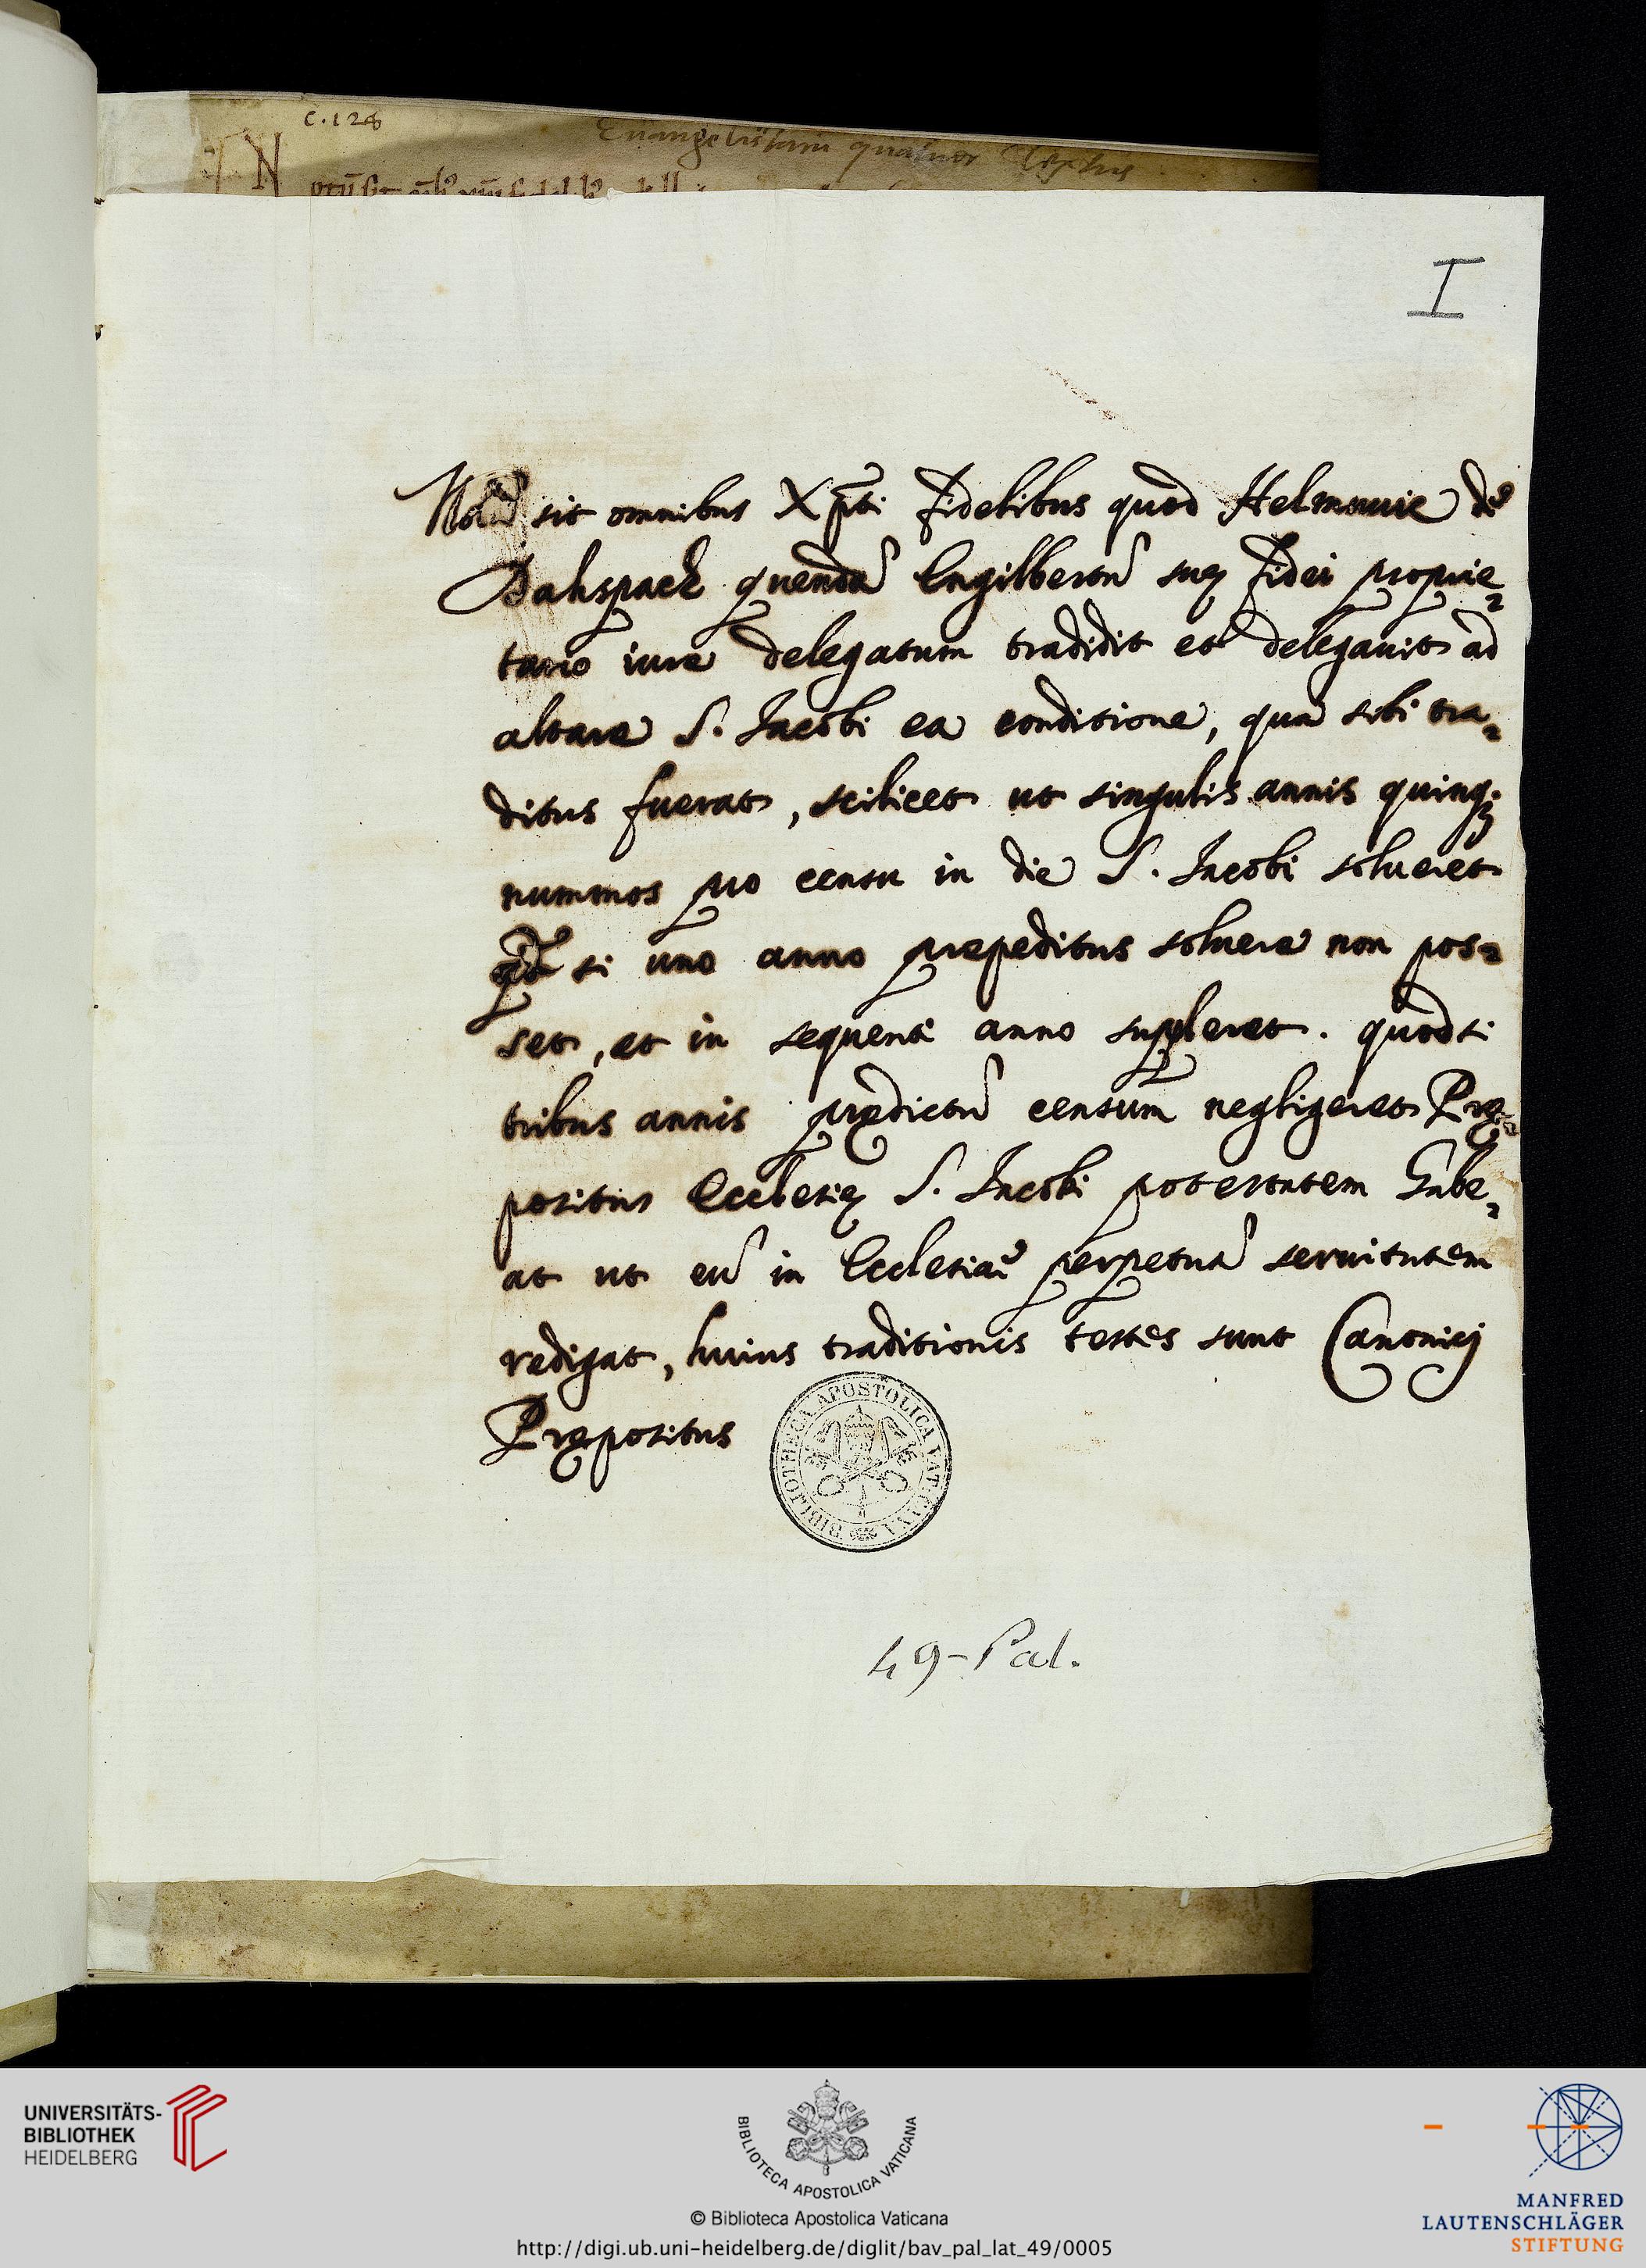 c. 128
Euangelistarum quatuor Textus
N
I
Notũ sit omnibus Xp̃ti fidelibus quod Helmouuic de
Dahspach quendã Engilbertũ suę fidei proprie-
tario iure delegatum tradidit et delegauit ad
altare S. Jacobi ea conditione, qua sibi tra-
ditus fuerat, scilicet ut singulis annis quinqꝫ
nummos pro censu in die S. Jacobi solueret
si uno anno prepeditus soluere non pos-
set, et in sequenti anno suppleret. quod si
tribus annis prędictũ censum negligeret Prę-
positus Ecclesię S. Jacobi potestatem habe-
at ut eũ in Ecclesiã perpetuã seruitutem
redigat, huius traditionis testes sunt Canonicj
Prępositus
BIBLIOTHECA APOSTOLICA VATICANA
49-Pal.
UNIVERSITÄTS-
BIBLIOTHEK
HEIDELBERG
BIBLIOTECA APOSTOLICA VATICANA
© Biblioteca Apostolica Vaticana
http://digi.ub.uni-heidelberg.de/diglit/bav_pal_lat_49/0005
MANFRED
LAUTENSCHLÄGER
STIFTUNG